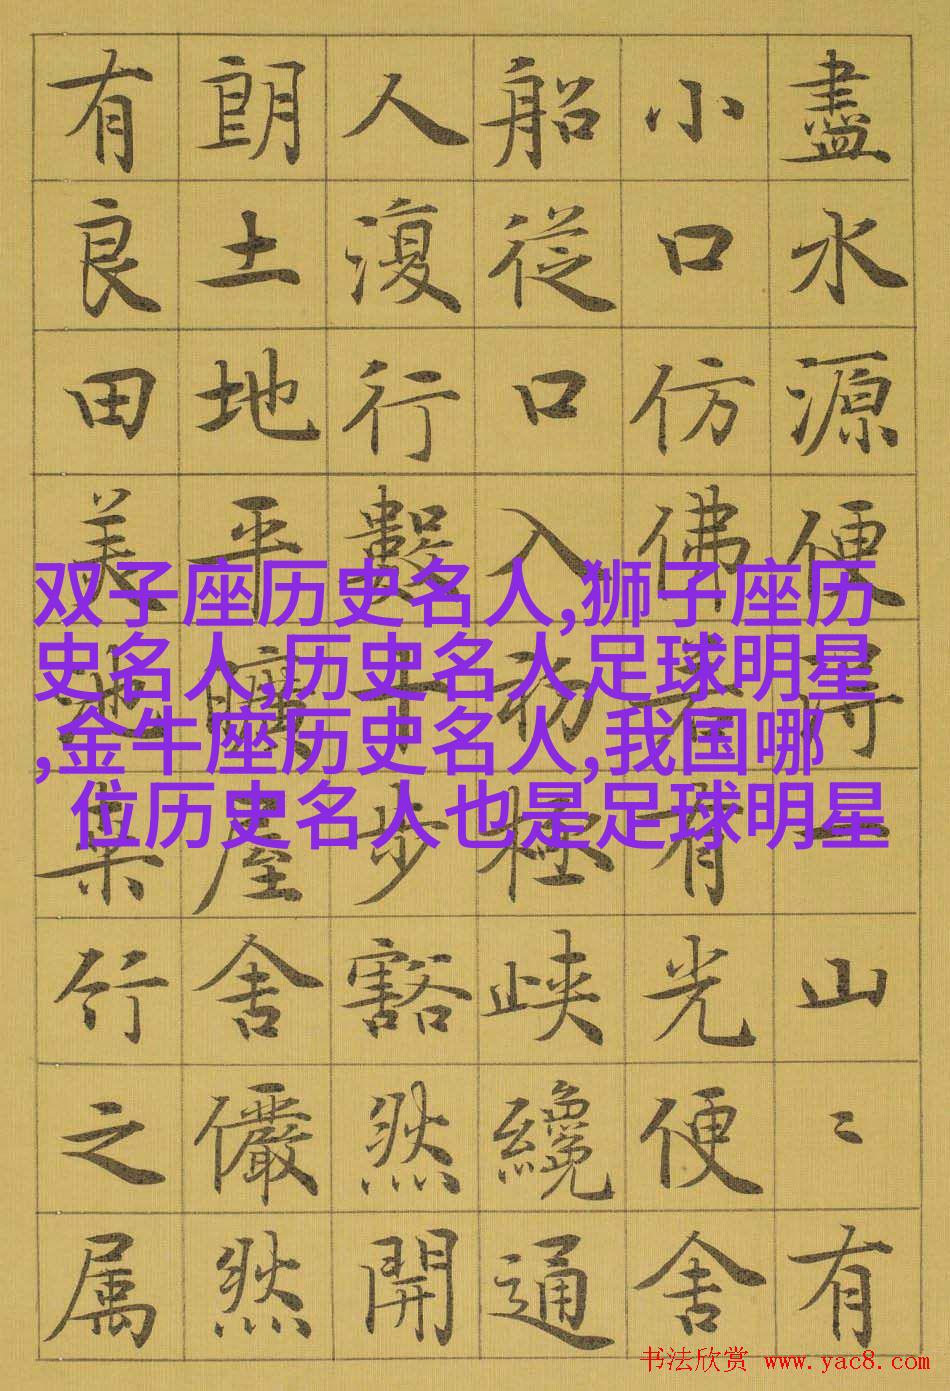 盡水源便得一山〻有
小口仿佛若有光便舍
船從口入初極峽纔通
人復行數十步豁然開
朗土地平曠屋舍儼然
有良田美池桑竹之属
双子座历史名人,狮子座历
史名人,历史名人足球明星
,金牛座历史名人,我国哪
位历史名人也是足球明星
书法欣赏 www.yac8.com